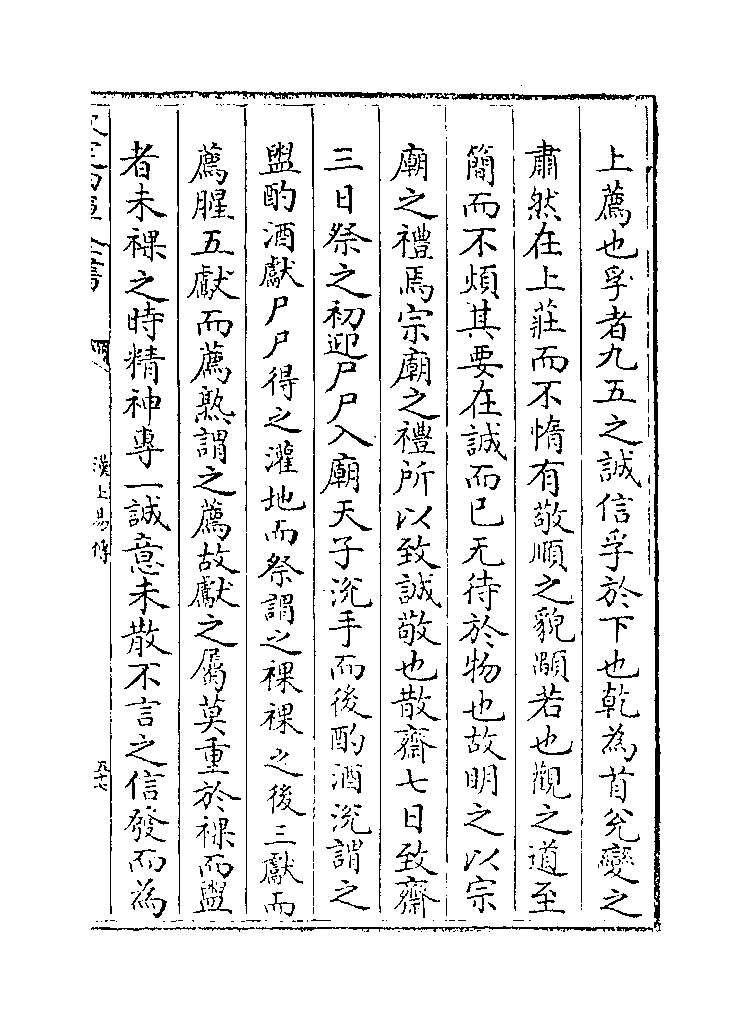 上薦也孚者九五之誠信孚於下也乾為首兊變之
肅然在上莊而不惰有敬順之貌顒若也觀之道至
簡而不煩其要在誠而已无待於物也故明之以宗
廟之禮焉宗廟之禮所以致誠敬也散齋七日致齋
三日祭之初迎尸尸入廟天子涗手而後酌酒涗謂之
盥酌酒獻尸尸得之灌地而祭謂之祼祼之後三獻而
薦腥五獻而薦熟謂之薦故獻之屬莫重於祼而盥
者未祼之時精神專一誠意未散不言之信發而為
漢上易傳
五十七